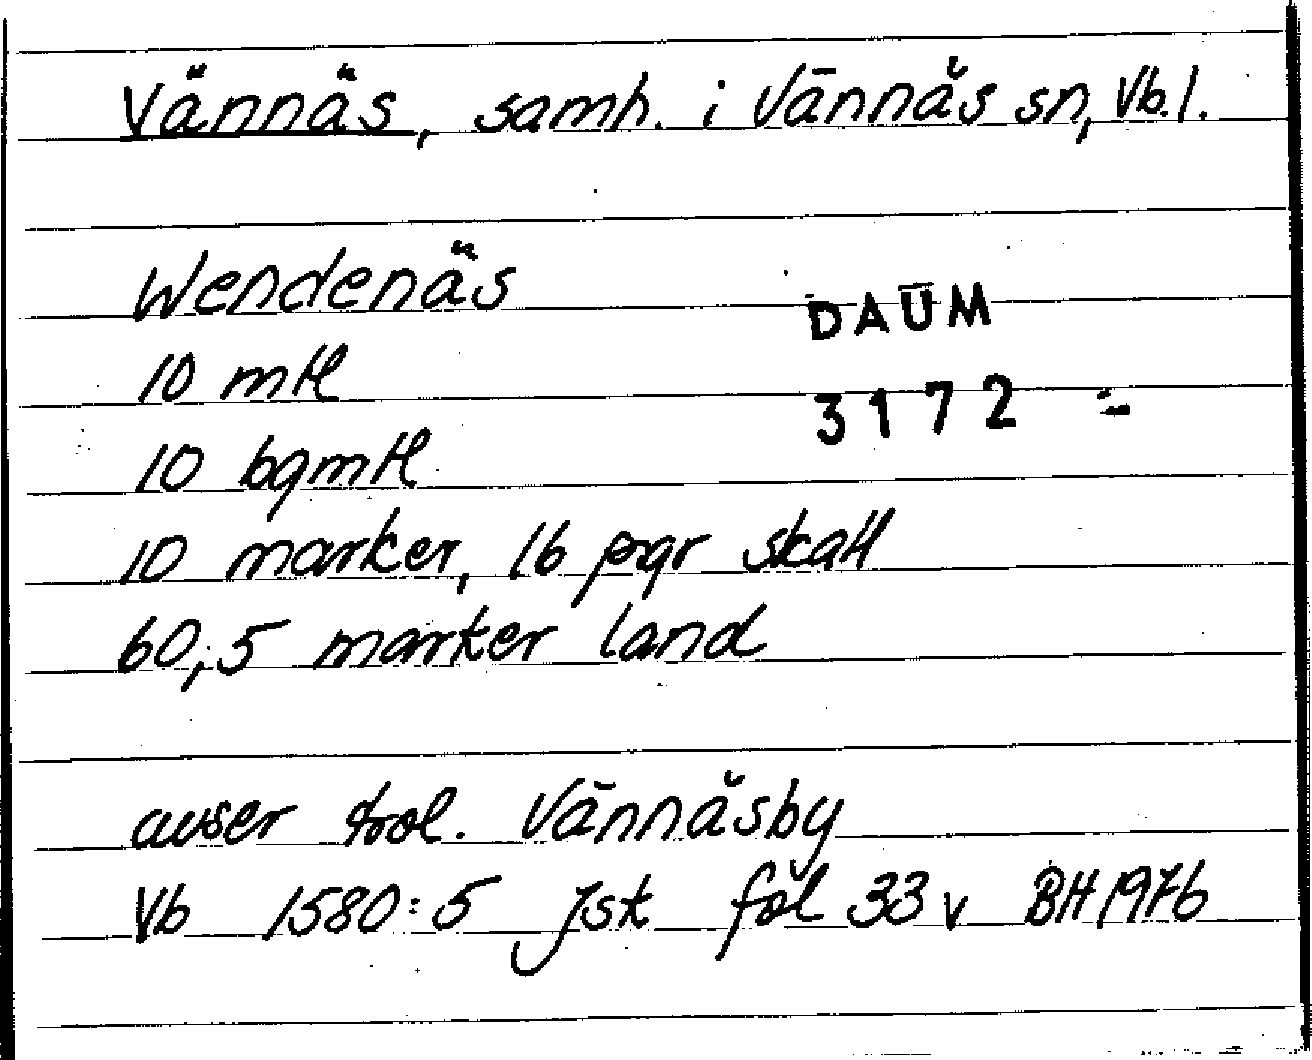 Vännäs, samh. i Vännäs sn, Vb.l.
Wendenäs
DAUM
10 mtl
3172
10 bgmtl
10 marker, 16 pgr skatt
60,5 marker land
avser trol. Vännäsby
Vb 1580:5 Jsk fol 33 v BH 1976